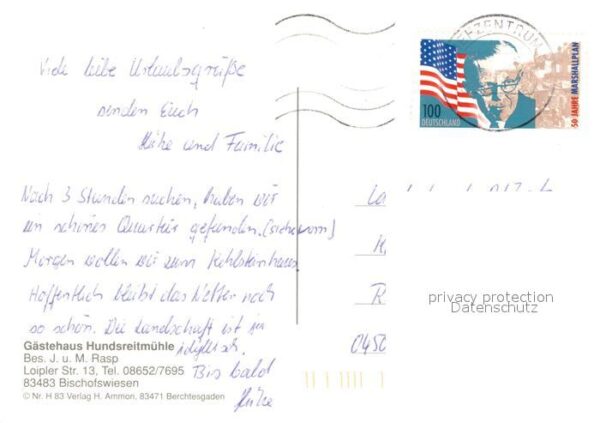 Viele liebe Urlaubsgrüße
senden Euch
und Familie
Nach 3 Stunden suchen, haben wir
ein schönes Quartier gefunden. (siehe vorn)
Morgen wollen wir zum Kehlsteinhaus
Hoffentlich bleibt das Wetter noch
so schön. Die Landschaft ist ja
idyllisch.
Bis bald
Gästehaus Hundsreitmühle
Bes. J. u. M. Rasp
Loipler Str. 13, Tel. 08652/7695
83483 Bischofswiesen
© Nr. H 83 Verlag H. Ammon, 83471 Berchtesgaden
100
DEUTSCHLAND
50 JAHRE MARSHALLPLAN
privacy protection
Datenschutz